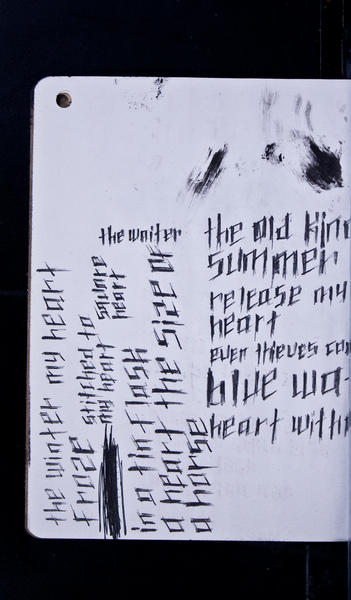 the waiter
the old kin
summer
release my
heart
even thieves co
blue wa-
heart with
the winter my heart
froze
stitched to
my heart
square
heart
in a tin flask
a heart the size of
a horse